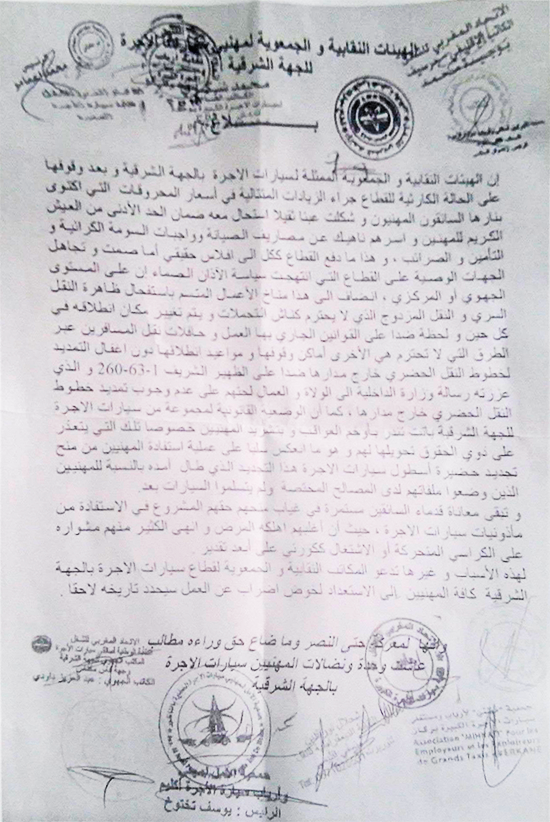 الهيئات النقابية و الجمعوية لمهنيي سيارات الأجرة
للجهة الشرقية
بـــلاغ
إن الهيئات النقابية و الجمعوية الممثلة لسيارات الاجرة بالجهة الشرقية و بعد وقوفها
على الحالة الكارثية للقطاع جراء الزيادات المتتالية في أسعار المحروقات التي اكتوى
بنارها السائقون المهنيون و شكلت عبئا ثقيلا استحال معه ضمان الحد الأدنى من العيش
الكريم للمهنيين و اسرهم ناهيك عن مصاريف الصيانة وواجبات السومة الكرائية و
التأمين و الضرائب ، و هذا ما دفع القطاع ككل الى افلاس حقيقي أما صمت و تجاهل
الجهات الوصية على القطاع التي انتهجت سياسة الآذان الصماء ان على المستوى
الجهوي أو المركزي ، انضاف الى هذا مناخ الأعمال المتسم باستفحال ظاهرة النقل
السري و النقل المزدوج الذي لا يحترم كناش التحملات و يتم تغيير مكان انطلاقه في
كل حين و لحظة ضدا على القوانين الجاري بها العمل و حافلات نقل المسافرين عبر
الطرق التي لا تحترم هي الأخرى أماكن وقوفها و مواعيد انطلاقها دون اغفال التمديد
لخطوط النقل الحضري خارج مدارها ضدا على الظهير الشريف 1-63-260 و الذي
عززته رسالة وزارة الداخلية الى الولاة و العمال لحثهم على عدم وجوب تمديد خطوط
النقل الحضري خارج مدارها ، كما أن الوضعية القانونية لمجموعة من سيارات الاجرة
للجهة الشرقية باتت تنذر بأوخم العواقب و تشريد المهنيين خصوصا تلك التي يتعذر
على ذوي الحقوق تحويلها لهم و هو ما انعكس سلبا على عملية استفادة المهنيين من منح
تجديد حضيرة أسطول سيارات الاجرة هذا التجديد الذي طال أمده بالنسبة للمهنيين
الذين وضعوا ملفاتهم لدى المصالح المختصة ولم يتسلموا السيارات بعد.
و تبقى معاناة قدماء السائقين مستمرة في غياب منحهم حقهم المشروع في الاستفادة من
مأذونيات سيارات الاجرة ، حيث أن أغلبهم اهلكه المرض و انهى الكثير منهم مشواره
على الكراسي المتحركة أو الاشتغال ككورتي على أبعد تقدير.
لهذه الأسباب و غيرها تدعو المكاتب النقابية و الجمعوية لقطاع سيارات الاجرة بالجهة
الشرقية كافة المهنيين إلى الاستعداد لخوض اضراب عن العمل سيحدد تاريخه لاحقا .
وإنها لمعركة حتى النصر وما ضاع حق وراءه مطالب
عاشت وحدة ونضالات المهنيين سيارات الاجرة
بالجهة الشرقية
الاتحاد المغربي للشغل
المكتب الجهوي للجهة الشرقية
الكاتب الجهوي : عبد العزيز داودي
جمعية الأمل لمهنيي
وارباب سيارة الأجرة اقليم
الرئيس : يوسف تختوخ
Association
Employeurs et les Employeurs
de Grands Taxis BERKANE